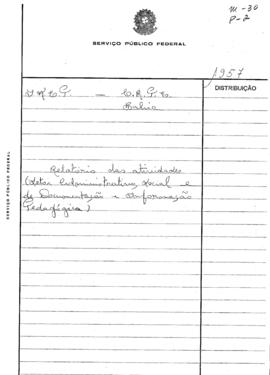 M-30
P-2
SERVIÇO PÚBLICO FEDERAL
1957
DISTRIBUIÇÃO
C.R.P.E.
Bahia
Relatório das atividades
(Setor Administrativo, Social e
de Documentação e Informação
Pedagógica)
SERVIÇO PÚBLICO FEDERAL